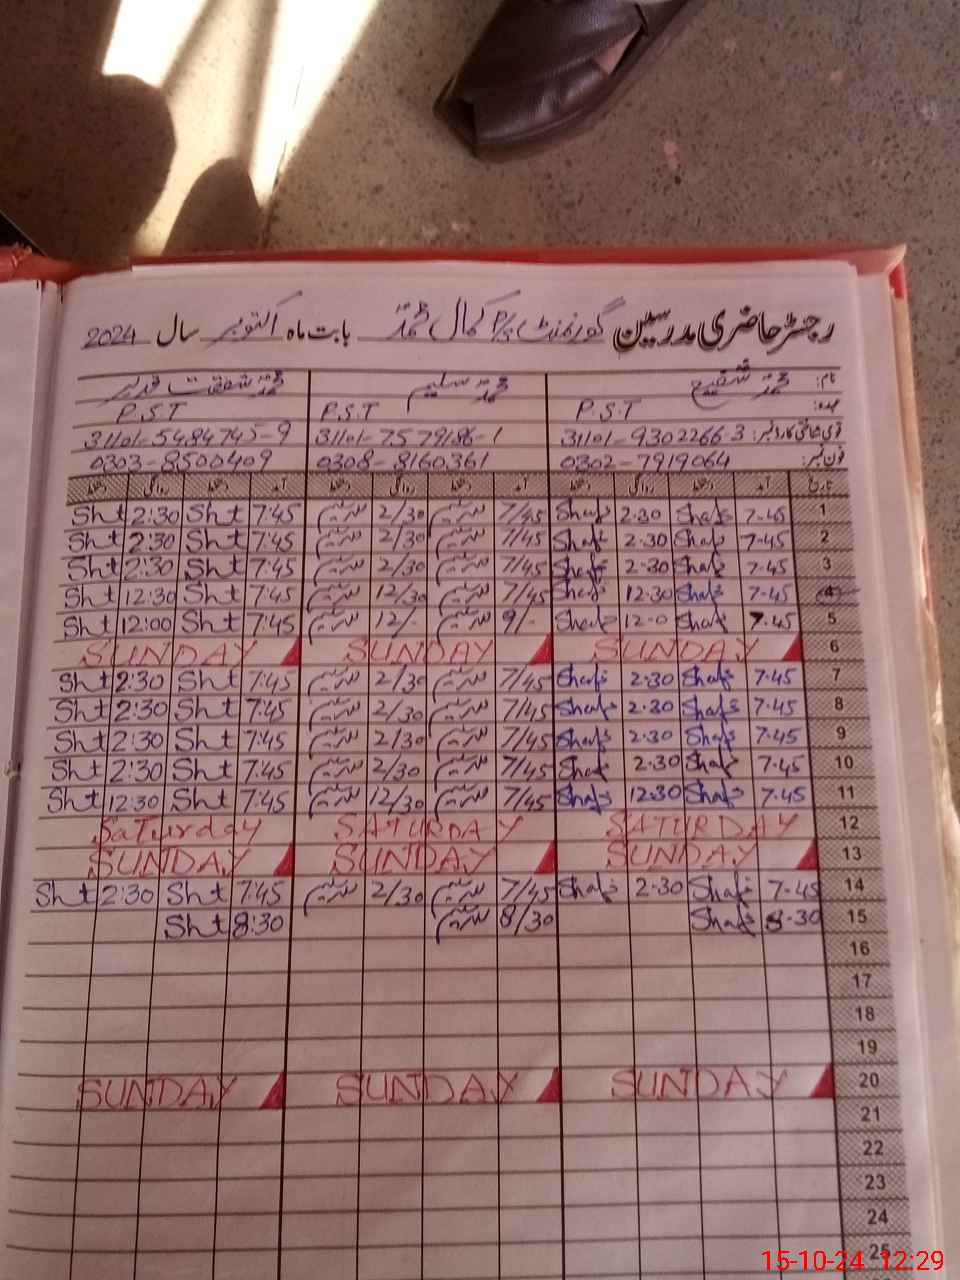 رجسٹر حاضری مدرسین گورنمنٹ P/S کمال محمدؐ بابت ماہ اکتوبر سال 2024
نام: محمد شفیع محمد سلیم محمد شفقت قدیر
عہدہ: P.S.T P.S.T P.S.T
قومی شناختی کارڈ نمبر: 31101-9302266 3 31101-7579186-1 31101-5484745-9
فون نمبر: 0302-7919064 0308-8160361 0303-8500409
تاریخ آمد دستخط روانگی دستخط آمد دستخط روانگی دستخط آمد دستخط روانگی دستخط
1 7-45 Shafi 2-30 Shafi 7/45 2/30 7:45 Sht 2:30 Sht
2 7-45 Shafi 2-30 Shafi 7/45 2/30 7:45 Sht 2:30 Sht
3 7-45 Shafi 2-30 Shafi 7/45 2/30 7:45 Sht 2:30 Sht
4 7-45 Shafi 12-30 Shafi 7/45 12/30 7:45 Sht 12:30 Sht
5 7-45 Shafi 12-0 Shafi 9/- 12/- 7:45 Sht 12:00 Sht
6 SUNDAY SUNDAY SUNDAY
7 7-45 Shafi 2-30 Shafi 7/45 2/30 7:45 Sht 2:30 Sht
8 7-45 Shafi 2-30 Shafi 7/45 2/30 7:45 Sht 2:30 Sht
9 7-45 Shafi 2-30 Shafi 7/45 2/30 7:45 Sht 2:30 Sht
10 7-45 Shafi 2-30 Shafi 7/45 2/30 7:45 Sht 2:30 Sht
11 7-45 Shafi 12-30 Shafi 7/45 12/30 7:45 Sht 12:30 Sht
12 SATURDAY SATURDAY SaTurday
13 SUNDAY SUNDAY SUNDAY
14 7-45 Shafi 2-30 Shafi 7/45 2/30 7:45 Sht 2:30 Sht
15 8-30 Shafi 8/30 8:30 Sht
16
17
18
19
20 SUNDAY SUNDAY SUNDAY
21
22
23
24
25
15-10-24 12:29